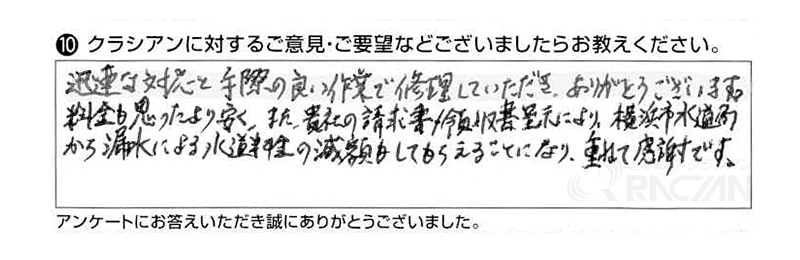 ⑩ クラシアンに対するご意見・ご要望などございましたらお教えください。
迅速な対応と手際の良い作業で修理していただき、ありがとうございます。
料金も思ったより安く、また、貴社の請求書/領収書呈示により、横浜市水道局
から漏水による水道料金の減額もしてもらえることになり、重ねて感謝です。
QRACIAN
アンケートにお答えいただき誠にありがとうございました。